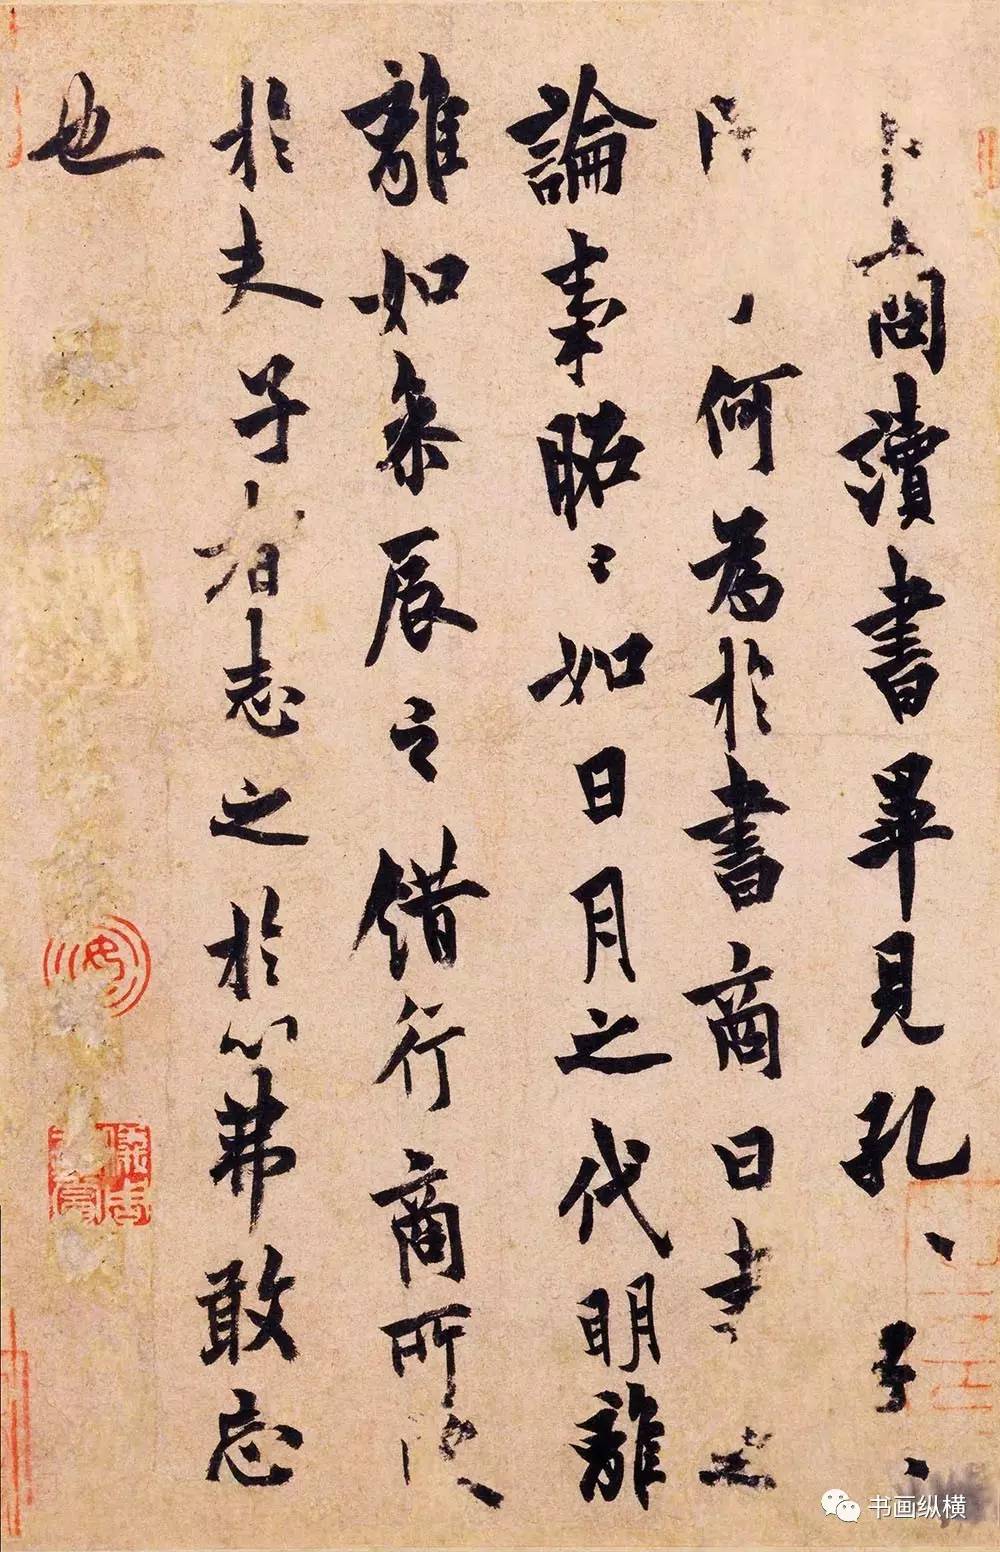 卜商讀書畢見孔、子、
何為於書商曰書之
論事昭〻如日月之代明離
離如參辰之錯行商所
於夫子者志之於心弗敢忘
也
书画纵横